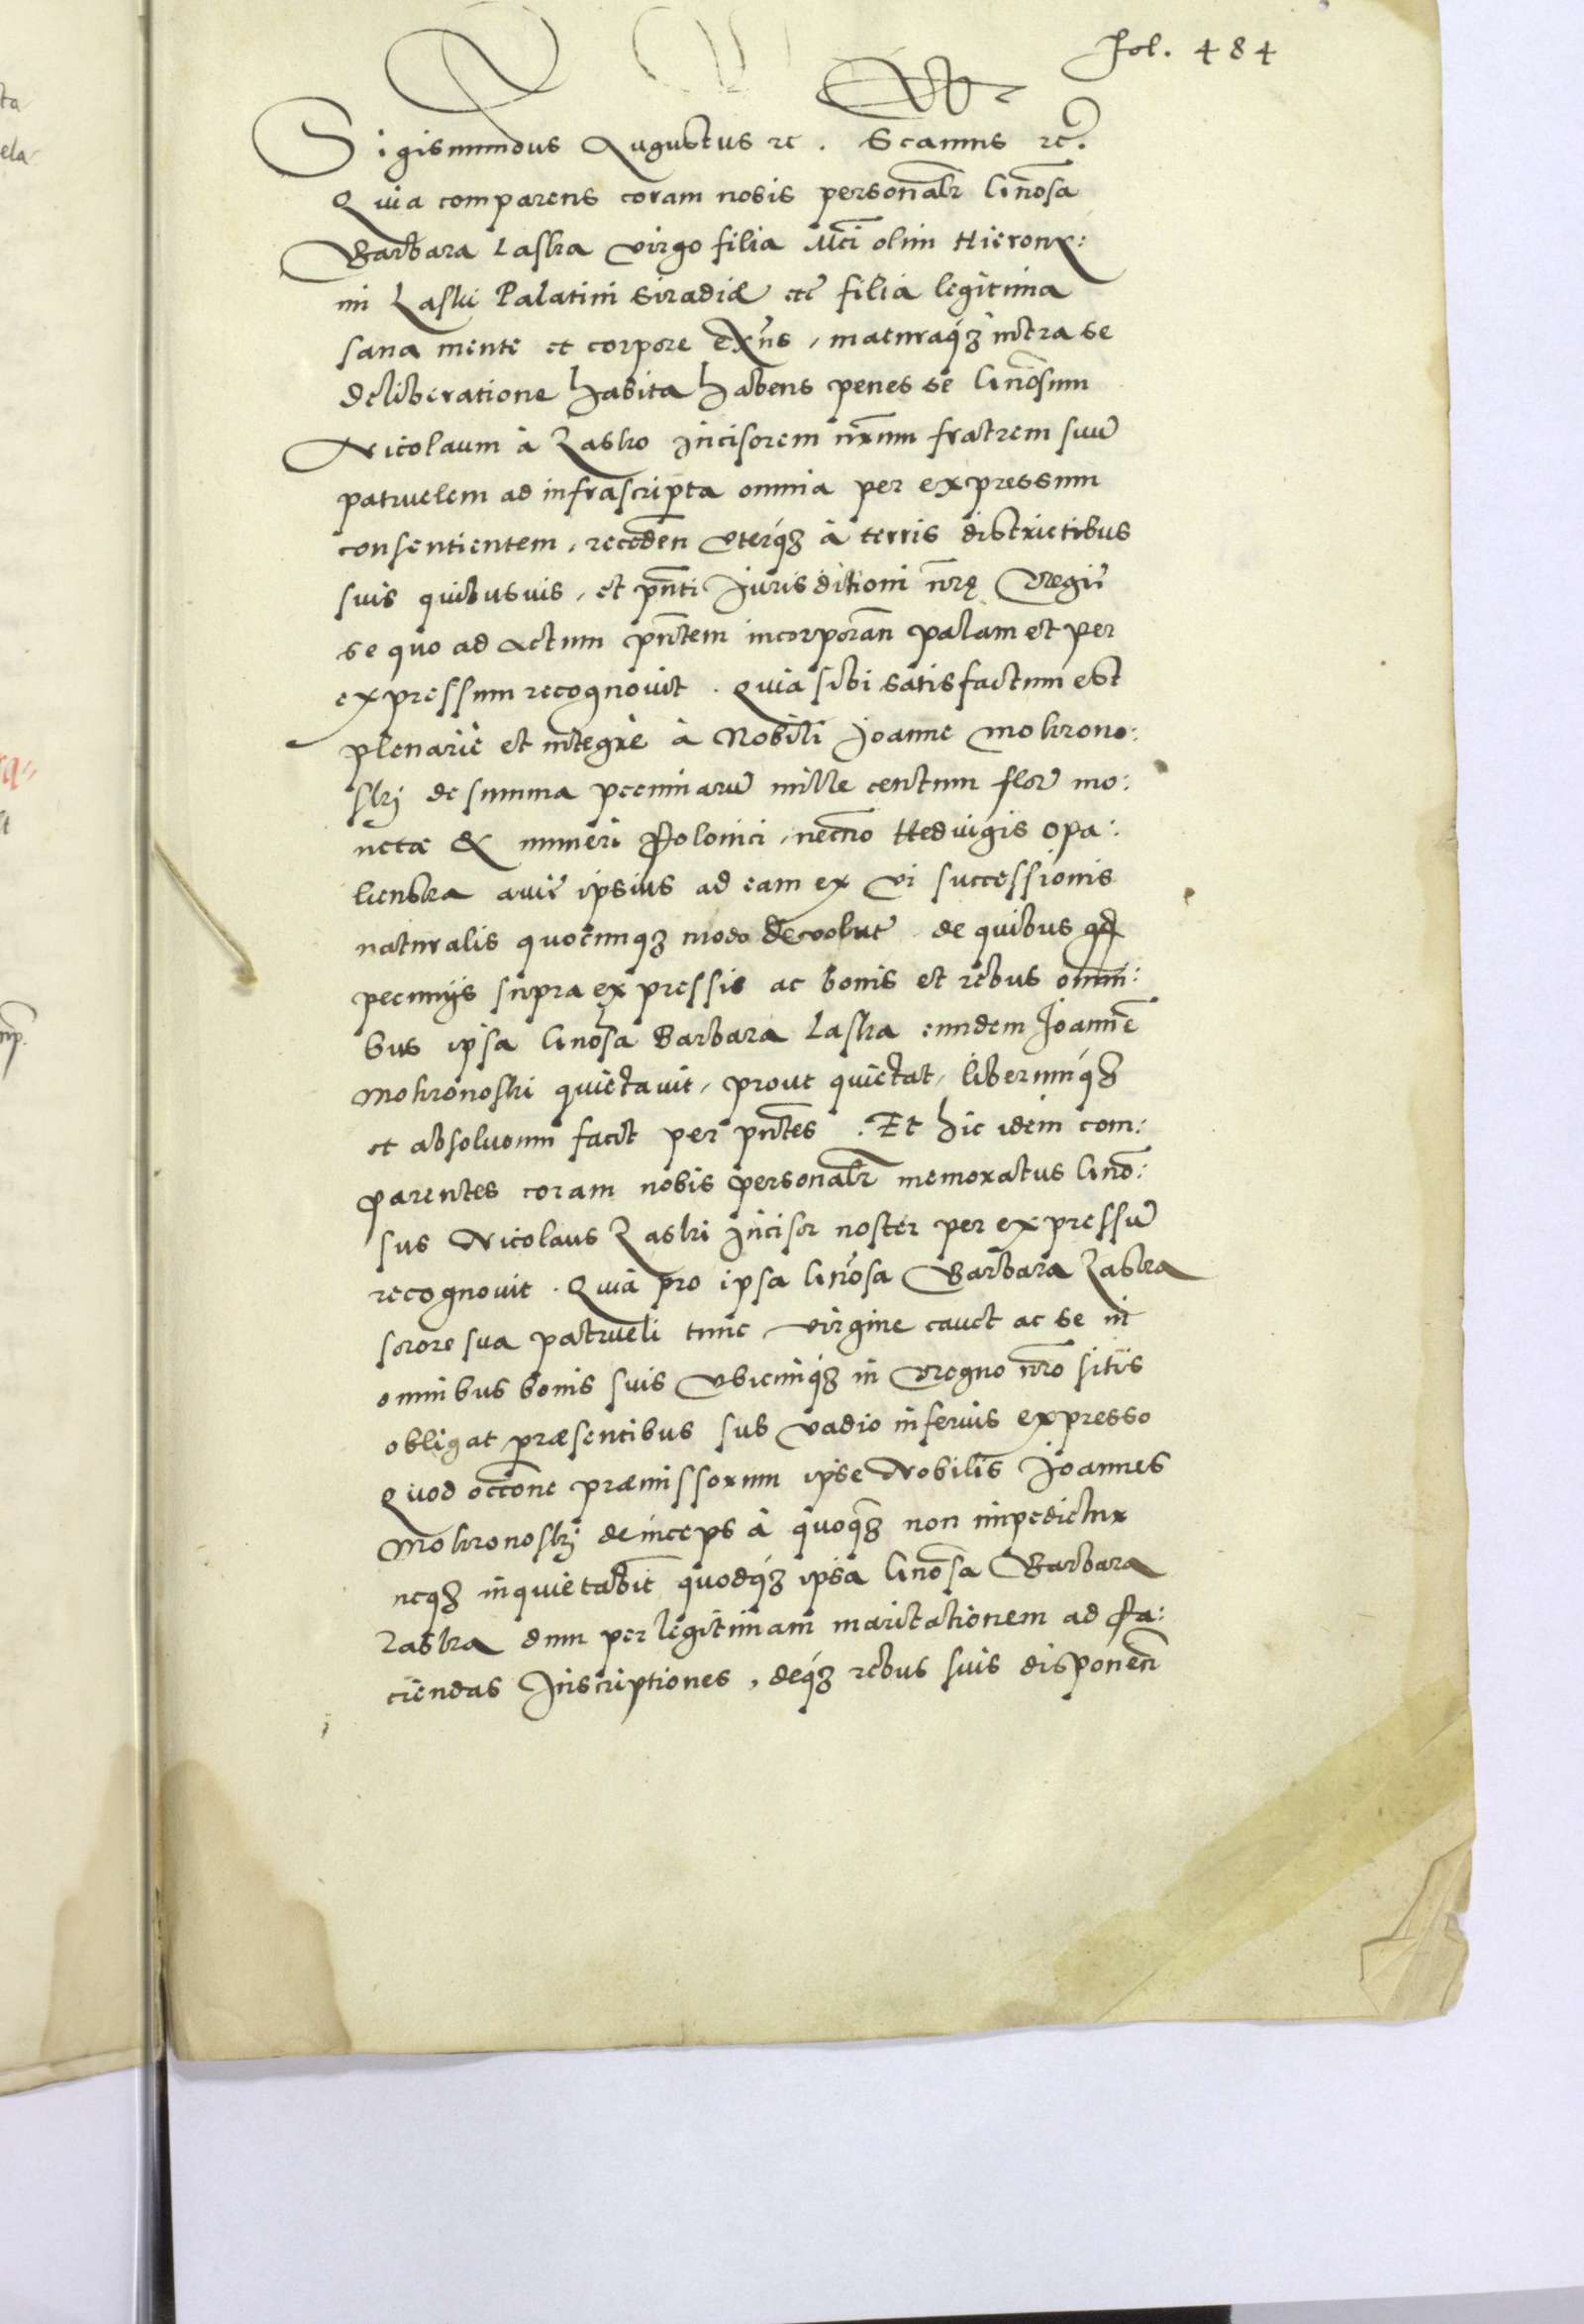 Fol. 484
Sigismundus Augustus rc. Scamus rc.
Quia comparens coram nobis personalr Gnosa
Barbara Laska virgo filia Mci olim Hierony:
mi Laski Palatini Siradiæ etc filia legitima
sana mente et corpore exns, maturaqȝ intra se
deliberatione habita habens penes se Gnosum
Nicolaum à Lasko Incisorem nrum fratrem suum
patruelem ad infrascripta omnia per expressum
consentientem, receden uterqȝ à terris districtibus
suis quibusuis, et pnti Jurisditioni nrę Regię
se quo ad actum pntem incorporan palam et per
expressum recognovit. Quia sibi satisfactum est
plenarie et integre à Nobili Joanne Mokrono:
skj de summa pecuniaru mille centum flor mo:
netæ & numeri Polonici, necno Heduigis Opa:
lienska auie ipsius ad eam ex vi successionis
naturalis quocunqȝ modo devolut de quibus qd
pecunijs supra expressis ac bonis et rebus omni:
bus ipsa Gnosa Barbara Laska eundem Joanne
Mokronoski quietauit, prout quietat, liberumqȝ
et absolutum facit per pntes. Et hic idem com:
parentes coram nobis personalr memoratus Gno:
sus Nicolaus Laski Incisor noster per expressu
recognovit. Quia pro ipsa Gnosa Barbara Laska
sorore sua patrueli tunc virgine cauet ac se in
omnibus bonis suis ubicunqȝ in Regno nro sitis
obligat præsentibus sub vadio inferius expresso
Quod occone præmissorum ipse Nobilis Joannes
Mokronoskj deinceps à quoqȝ non impedietur
neqȝ inquietabit quodqȝ ipsa Gnosa Barbara
Laska dum per legitimam maritationem ad fa:
ciendas Inscriptiones, deqȝ rebus suis disponen